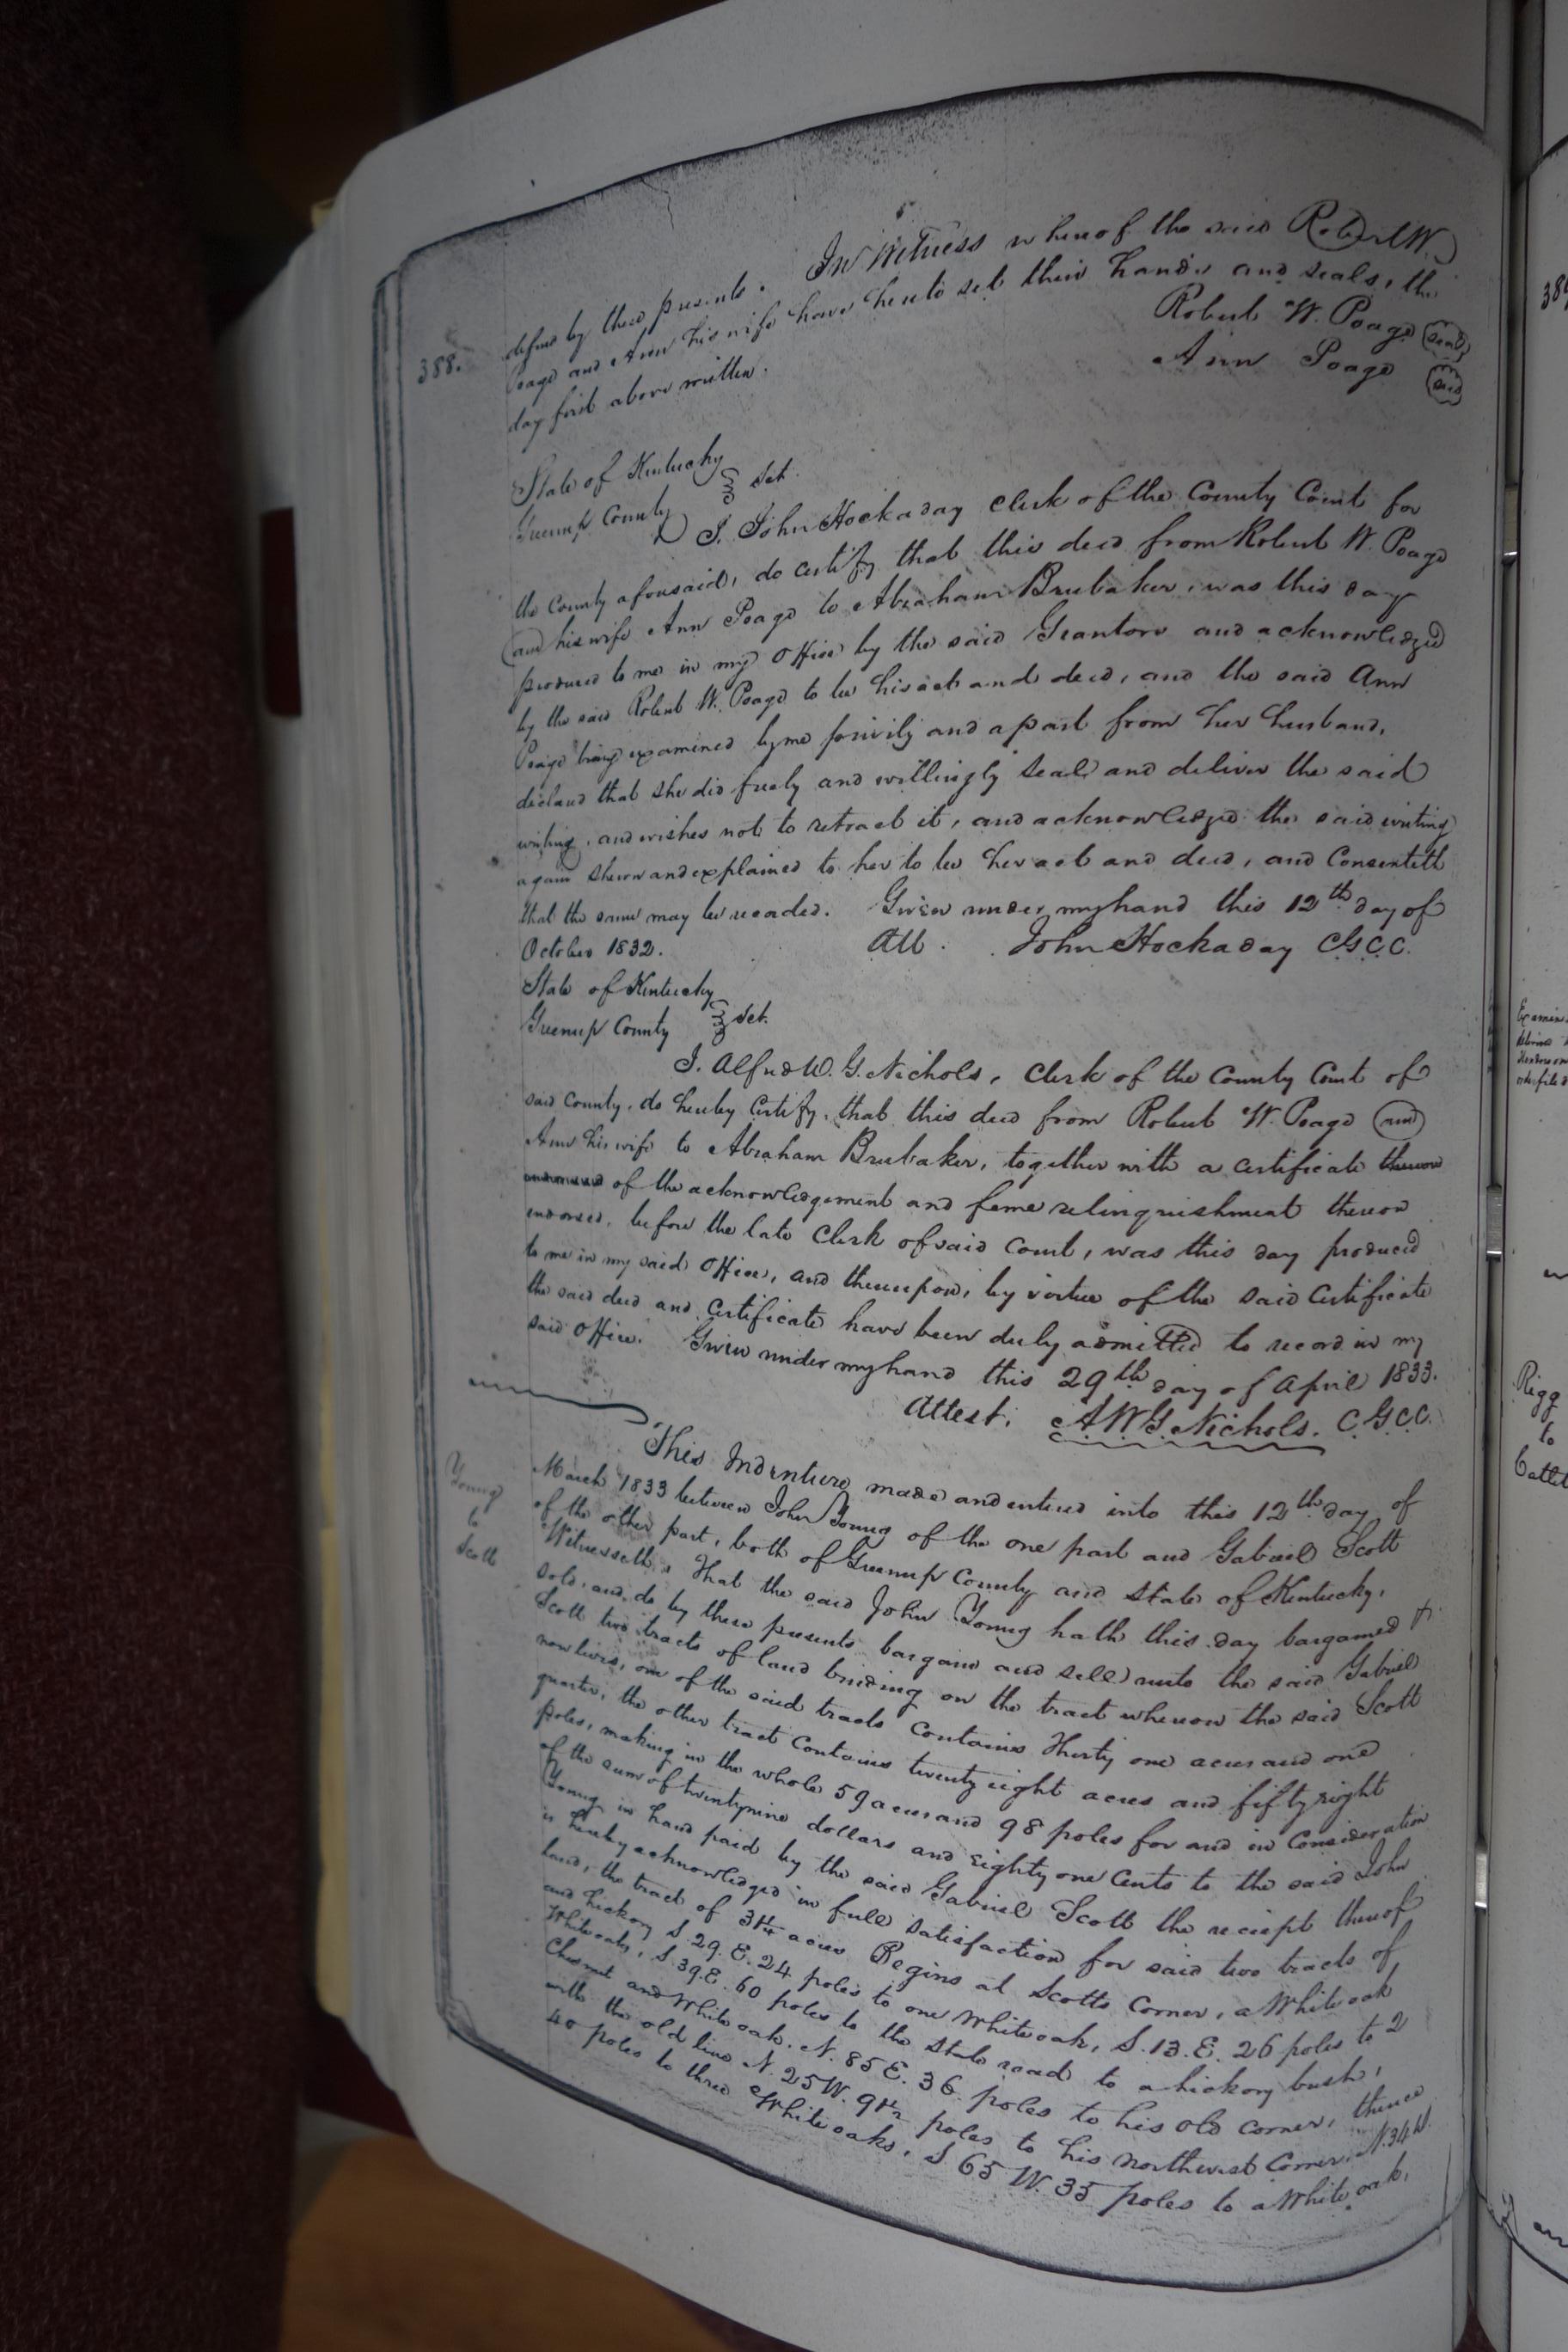 388.
defend by these presents. In Witness whereof the said Robert W.
Poage and Ann his wife have hereto set their hands and seals, the
day first above written.
Robert W. Poage (seal)
Ann Poage (seal)
State of Kentucky
Greenup County Sct.
I, John Hockaday clerk of the County Court for
the County aforesaid, do certify that this deed from Robert W. Poage
and his wife Ann Poage to Abraham Brubaker, was this day
produced to me in my office by the said Grantors and acknowledged
by the said Robert W. Poage to be his act and deed, and the said Ann
Poage being examined by me privily and apart from her husband,
declared that she did freely and willingly seal and deliver the said
writing, and wishes not to retract it, and acknowledged the said writing
again shewn and explained to her to be her act and deed, and Consenteth
that the same may be recorded. Given under my hand this 12th day of
October 1832. Att. John Hockaday C.G.C.C.
State of Kentucky
Greenup County Sct.
I, Alfred W. G. Nichols, Clerk of the County Court of
said County, do hereby Certify, that this deed from Robert W. Poage and
Ann his wife to Abraham Brubaker, together with a certificate thereon
of the acknowledgement and feme relinquishment thereon
endorsed, before the late Clerk of said Court, was this day produced
to me in my said Office, and thereupon, by virtue of the said Certificate
the said deed and Certificate have been duly admitted to record in my
said Office. Given under my hand this 29th day of April 1833.
Attest, A W G Nichols. C.G.C.C.
Young
to
Scott
This Indenture made and entered into this 12th day of
March 1833 between John Young of the one part and Gabriel Scott
of the other part, both of Greenup County and State of Kentucky,
Witnesseth, That the said John Young hath this day bargained &
sold, and do by these presents bargain and sell unto the said Gabriel
Scott two tracts of land binding on the tract whereon the said Scott
now lives, one of the said tracts Contains Thirty one acres and one
quarter, the other tract Contains twenty eight acres and fifty eight
poles, making in the whole 59 acres and 98 poles for and in Consideration
of the sum of twentynine dollars and Eighty one Cents to the said John
Young in hand paid by the said Gabriel Scott the reciept thereof
is hereby acknowledged in full satisfaction for said two tracts of
land, the tract of 31¼ acres Begins at Scotts Corner, a White oak
and hickory S. 29. E. 24 poles to one White oak, S. 13. E. 26 poles to 2
White oaks, S. 39. E. 60 poles to the State road to a hickory bush,
Chesnut and White oak. N. 85 E. 36 poles to his old Corner, thence
with the old line N. 25 W. 91½ poles to his northwest Corner, N. 34 W.
40 poles to three White oaks, S 65 W. 35 poles to a White oak,
Rigg
to